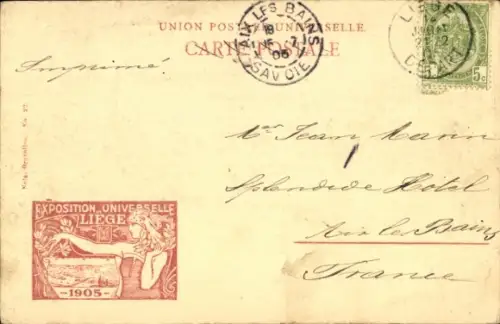 UNION POSTALE UNIVERSELLE.
CARTE POSTALE
AIX LES BAINS
05
SAVOIE
LIEGE
DÉPART
5c
Imprimé
Mr Jean Mann
Splendide Hôtel
Aix le Bains
France
EXPOSITION UNIVERSELLE
LIEGE
1905